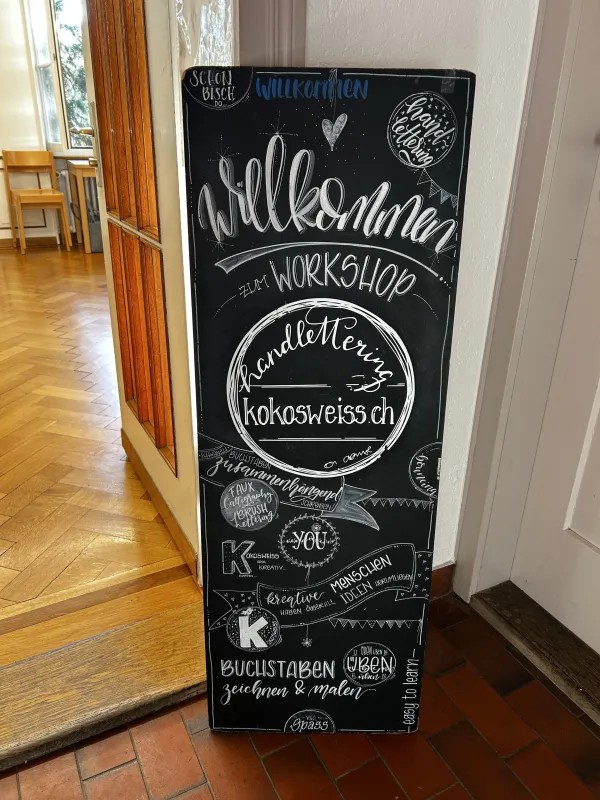 SCHÖN
BISCH
DO
WILLKOMMEN
hand-
lettering
Willkommen
ZUM WORKSHOP
handlettering
kokosweiss.ch
BUCHSTABEN
zusammenhängend
FAUX
Calligraphy
YOU
K
KOKOSWEISS
KREATIV
kreative MENSCHEN
HABEN ÜBERALL IDEEN HERUMLIEGEN
k
BUCHSTABEN
zeichnen & malen
ÜBEN
easy to learn
Spass